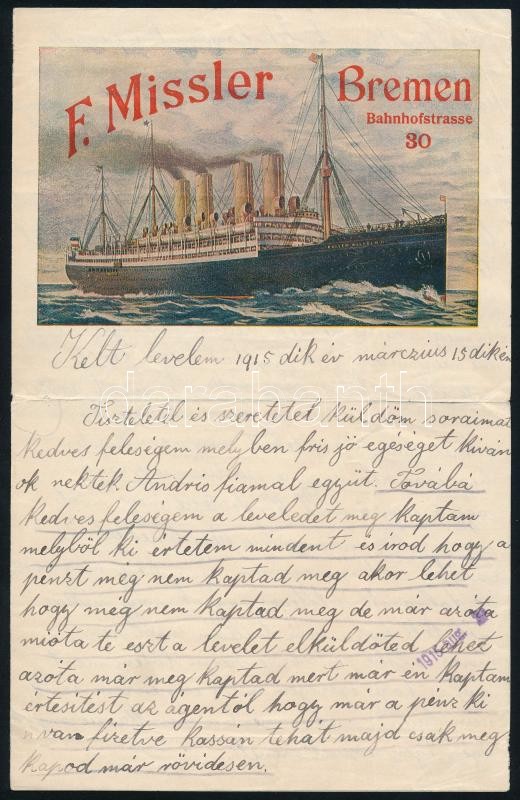 F. Missler Bremen
Bahnhofstrasse
30
Kelt levelem 1915 dik év márczius 15 dikén
Tiszteletel és szeretetel küldöm soraimat
kedves feleségem melyben fris jó egéséget kiván
ok nektek Andris fiamal együt. Továbá
kedves feleségem a leveledet meg kaptam
melyböl ki értetem mindent és irod hogy a
pénzt még nem kaptad meg akor lehet
hogy még nem kaptad meg de már azóta
mióta te eszt a levelet elküldöted lehet
azóta már meg kaptad mert már én kaptam
értesitést az ágentól hogy már a pénz ki
van fizetve kassán tehát majd csak meg
kapod már rövidesen.
darabanth
1915